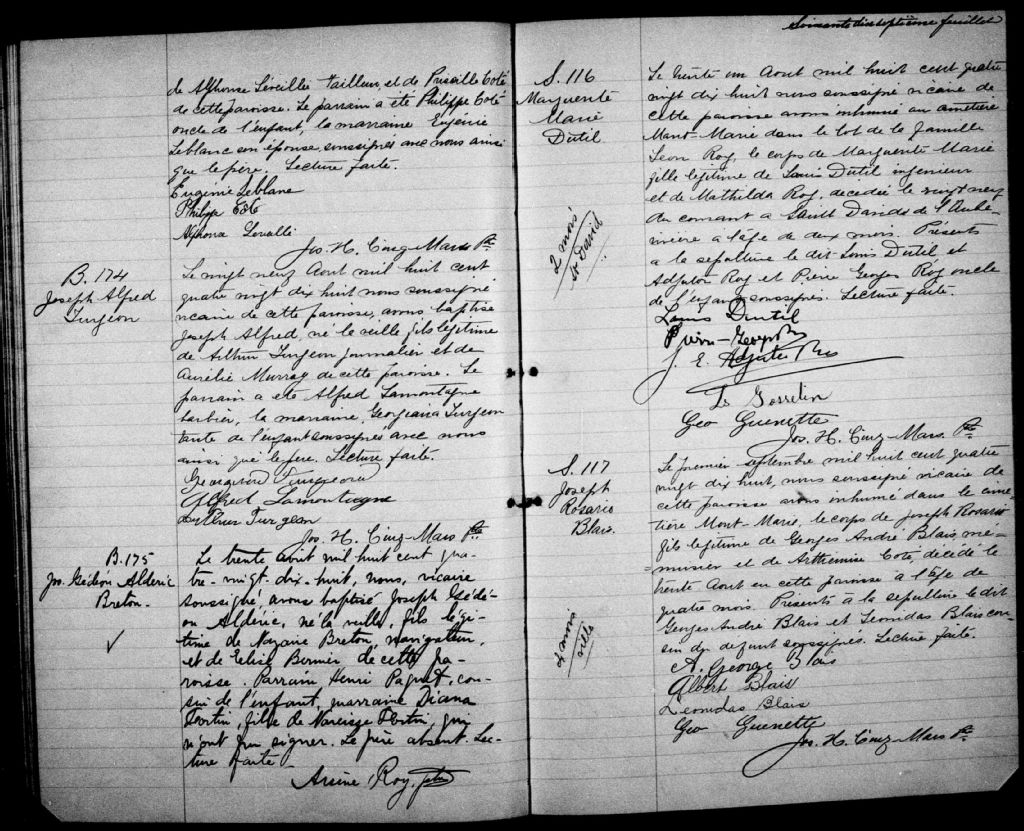 de Alphonse Léveillé tailleur et de Priscille Coté
de cette paroisse. Le parrain a été Philippe Coté
oncle de l'enfant, la marraine Eugénie
Leblanc son épouse soussignés avec nous ainsi
que le père. Lecture faite.
Eugénie Leblanc
Philippe Coté
Alphonse
Jos. H. Cinq-Mars Ptre
B. 174
Joseph Alfred
Turgeon
Le vingt neuf Aout mil huit cent
quatre vingt dix huit nous soussigné
vicaire de cette paroisse, avons baptisé
Joseph Alfred, né la veille, fils légitime
de Arthur Turgeon journalier et de
Aurélie Murray de cette paroisse. Le
parrain a été Alfred Lamontagne
barbier, la marraine Georgiana Turgeon
tante de l'enfant soussignés avec nous
ainsi que le père. Lecture faite.
Alfred Lamontagne
Arthur Turgeon
Jos. H. Cinq-Mars Ptre
B. 175
Jos. Gédéon Aldéric
Breton.
Le trente août mil huit cent qua-
tre-vingt-dix-huit, nous, vicaire
soussigné, avons baptisé Joseph Gédé-
on Aldéric, né la veille, fils légi-
time de Nazaire Breton, navigateur,
et de Eélise Bernier de cette pa-
roisse. Parrain Henri Paquet, cou-
sin de l'enfant, marraine Diana
Fortin, fille de Narcisse Fortin, qui
n'ont pu signer. Le père absent. Lec-
ture faite.
Arsène Roy, ptre
Soixante dix septième feuillet
S. 116
Marguerite
Marie
Dutil
2 mois
St David
Le trente un Aout mil huit cent quatre
vingt dix huit nous soussigné vicaire de
cette paroisse avons inhumé au cimetière
Mont-Marie dans le lot de la famille
Léon Roy, le corps de Marguerite Marie
fille légitime de Louis Dutil ingénieur
et de Mathilda Roy, décédée le vingt neuf
du courant a Saint Davids de l'Aube-
rivière à l'âge de deux mois. Présents
a la sépulture le dit Louis Dutil et
Adjutor Roy et Pierre Georges Roy oncle
de l'enfant soussignés. Lecture faite.
Louis Dutil
Pierre-Georges Roy
J. E. Adjutor Roy
Ls Gosselin
Geo Guenette
Jos. H. Cinq-Mars. Ptre
S. 117
Joseph
Rosario
Blais.
4 mois
ville
Le premier septembre mil huit cent quatre
vingt dix huit, nous soussigné vicaire de
cette paroisse avons inhumé dans le cime-
tière Mont-Marie, le corps de Joseph Rosario
fils légitime de Georges André Blais, me-
nuisier et de Arthémise Coté, décédé le
trente Aout en cette paroisse a l'âge de
quatre mois. Présents à la sépulture le dit
Georges André Blais et Leonidas Blais cou-
sin du defunt soussignés. Lecture faite.
A. George Blais
Albert Blais
Leonidas Blais
Geo Guenette
Jos. H. Cinq-Mars Ptre